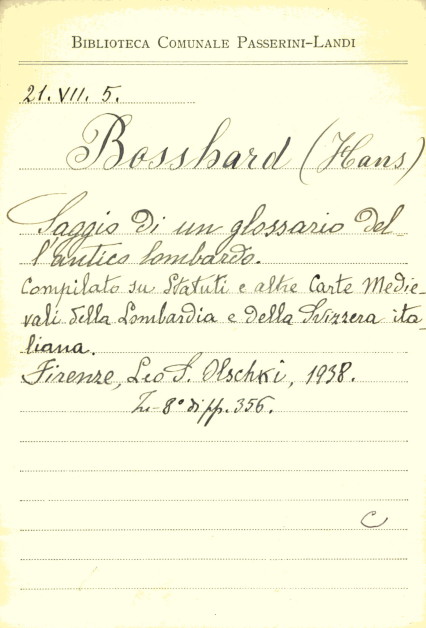 BIBLIOTECA COMUNALE PASSERINI-LANDI
21. VII. 5.
Bosshard (Hans)
Saggio di un glossario del-
l'antico lombardo.
Compilato su Statuti e altre Carte Medie-
vali della Lombardia e della Svizzera ita-
liana.
Firenze, Leo S. Olschki, 1938.
In-8° di pp. 356.
C